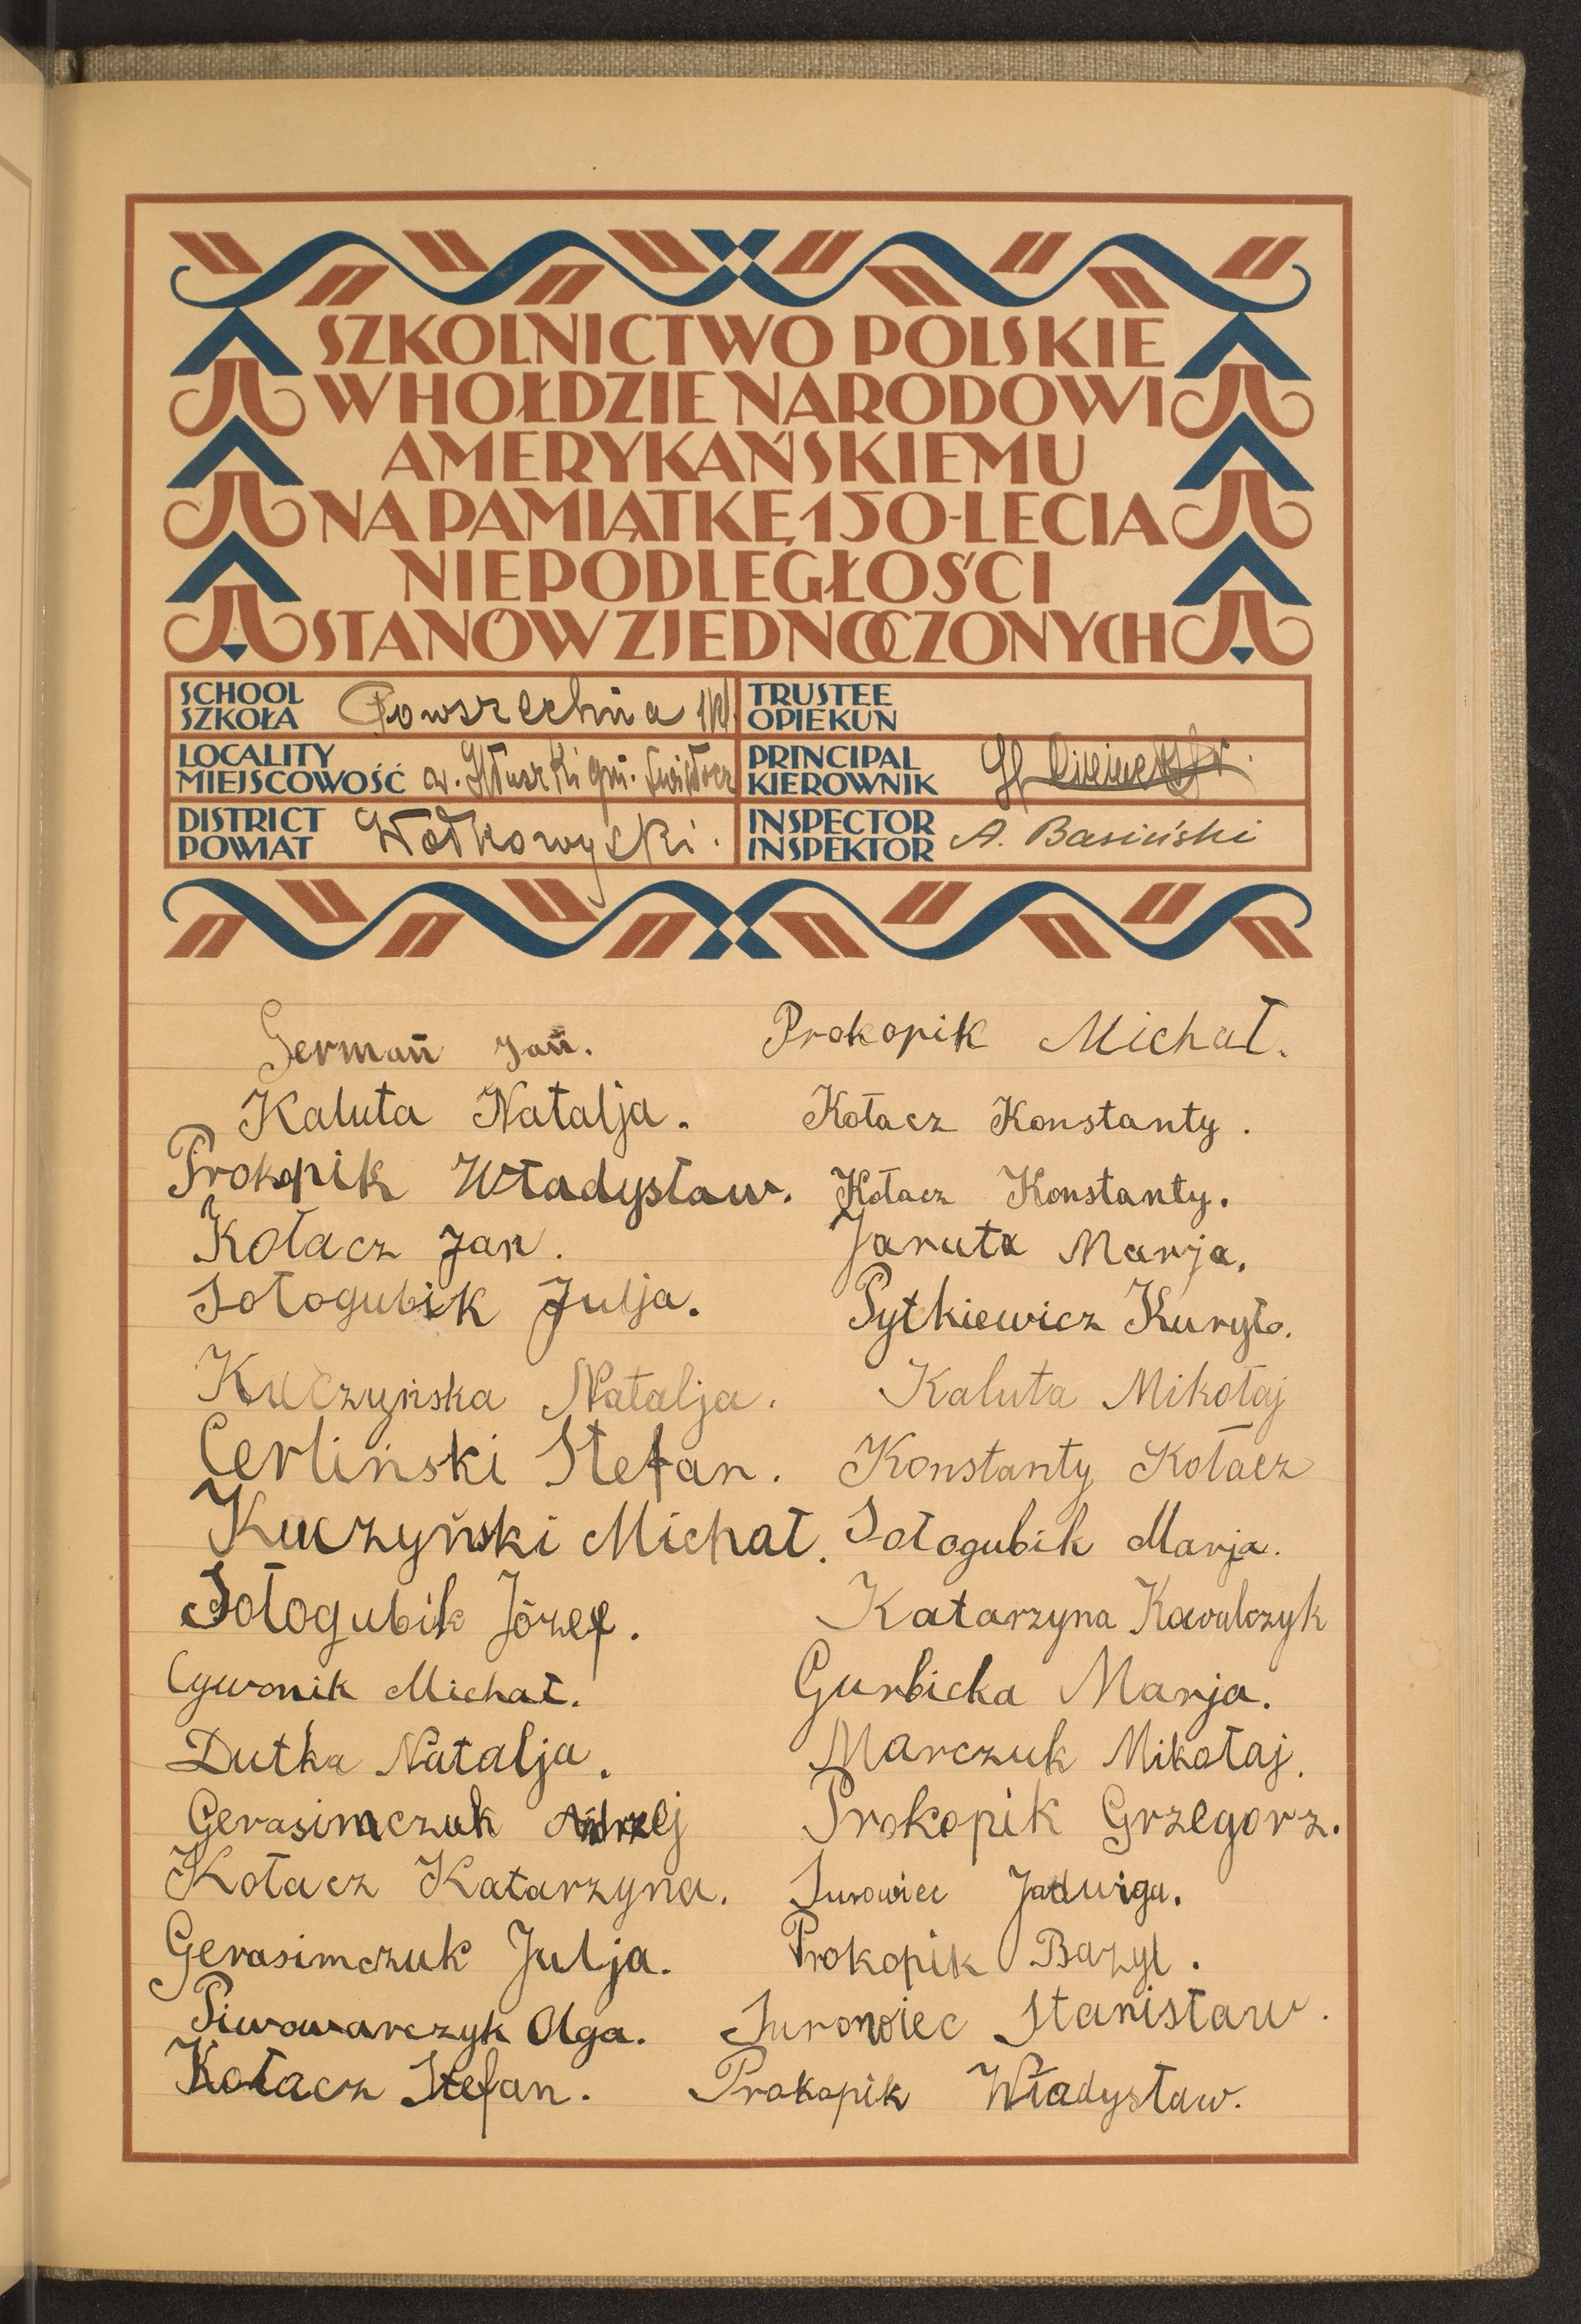 SZKOLNICTWO POLSKIE
W HOŁDZIE NARODOWI
AMERYKAŃSKIEMU
NA PAMIĄTKĘ 150-LECIA
NIEPODLEGŁOŚCI
STANÓW ZJEDNOCZONYCH
SCHOOL
SZKOŁA
Powszechna
TRUSTEE
OPIEKUN
LOCALITY
MIEJSCOWOŚĆ
gm. Świsłocz
PRINCIPAL
KIEROWNIK
DISTRICT
POWIAT
Wołkowycki.
INSPECTOR
INSPEKTOR
A. Basiński
Germań Jań.
Kaluta Natalja.
Prokopik Władysław.
Kołacz Jan.
Sołogubik Julja.
Kuczyńska Natalja.
Cerliński Stefan.
Kuczyński Michał.
Sołogubik Józef.
Cywonik Michał.
Dutka Natalja.
Gerasimczuk Andrzej
Kołacz Katarzyna.
Gerasimczuk Julja.
Piwowarczyk Olga.
Kołacz Stefan.
Prokopik Michał.
Kołacz Konstanty.
Kołacz Konstanty.
Jaruta Marja.
Pytkiewicz Kuryło.
Kaluta Mikołaj
Konstanty Kołacz
Sołogubik Marja.
Katarzyna Kowalczyk
Gurbicka Marja.
Marczuk Mikołaj.
Prokopik Grzegorz.
Surowiec Jadwiga.
Prokopik Bazyl.
Surowiec Stanisław.
Prokopik Władysław.